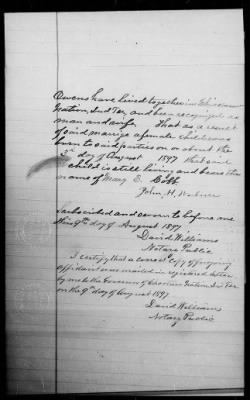 Owens have lived together in Chickasaw
Nation, Ind Ter, and been recognized as
man and wife. That as a result
of said marriage a female child was
born to said parties on or about the
3rd day of August 1897 that said
child is still living and bears the
name of Mary E. Cobb.
John, H, 
Subscribed and sworn to before me
this 9th day of August 1897
David Williams
Notary Public
I certify that a correct copy of foregoing
affidavit was mailed in registered letter
by me to the Governor of Chickasaw Nation Ind Ter
on the 9th day of August 1897.
David Williams
Notary Public